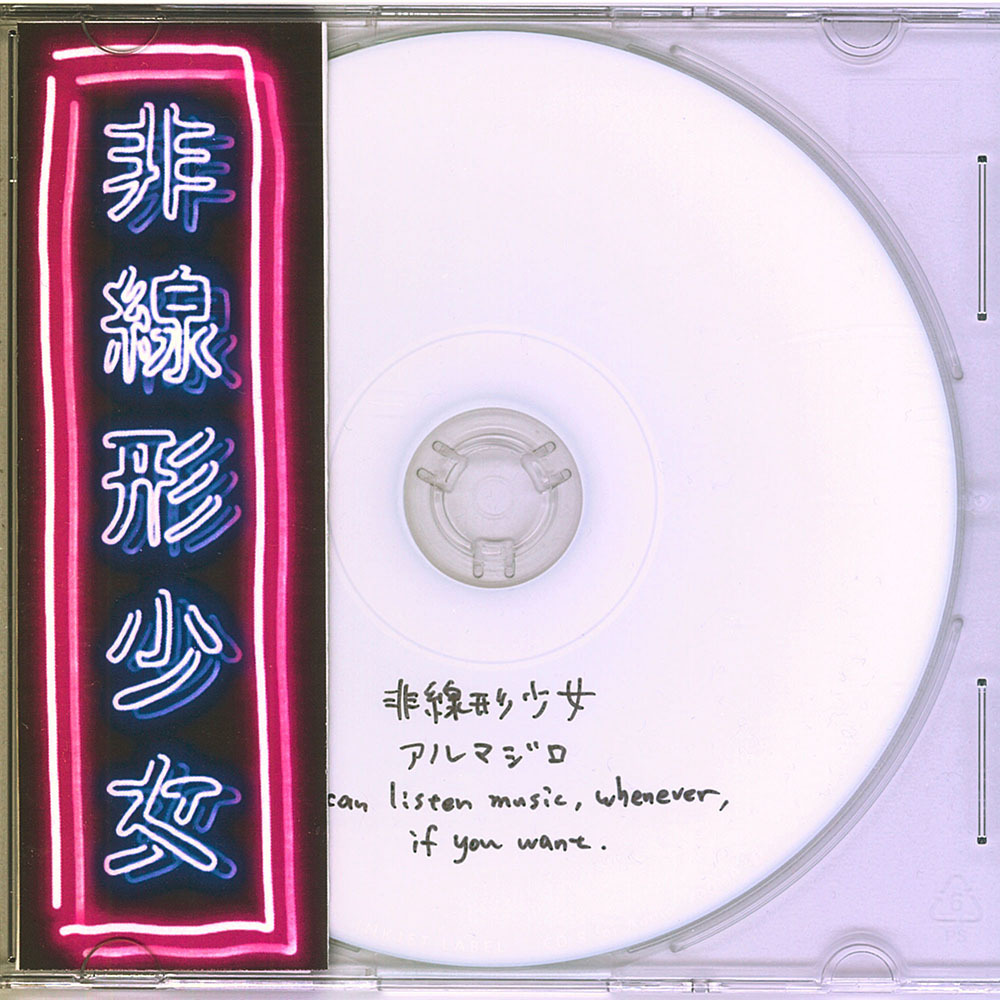 非線形少女
非線形少女
アルマジロ
can listen music, whenever,
if you want.